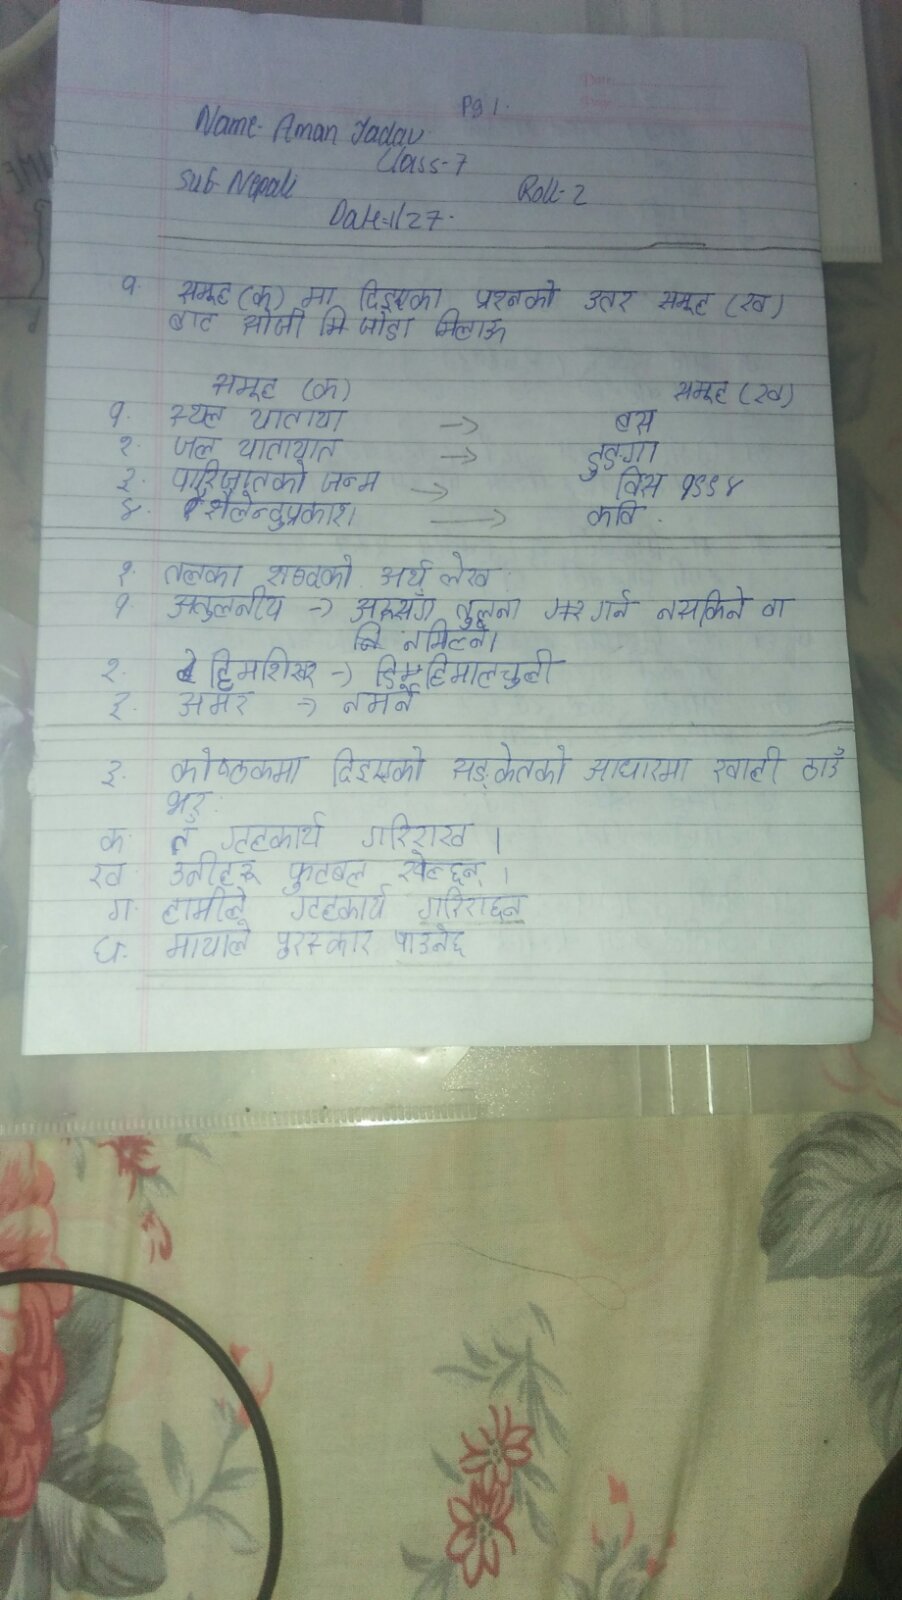 Pg 1.
Name- Aman Yadav
Class-7
Sub- Nepali
Roll-2
Date=1/27.
१. समूह (क) मा दिइएका प्रश्नको उत्तर समूह (ख)
बाट खोजी भि जोडा मिलाऊ
समूह (क) समूह (ख)
१. स्थल याताया → बस
२. जल यातायात → डुङ्गा
३. पारिजातको जन्म → विस १९९४
४. शैलेन्दुप्रकाश। → कवि.
२. तलका शब्दको अर्थ लेख
१. अतुलनीय → अरूसँग तुलना गर्न नसकिने वा
नमिल्ने।
२. हिमशिखर → हिमालचुली
३. अमर → नमर्ने
३. कोष्ठकमा दिइएको सङ्केतको आधारमा खाली ठाउँ
भर:
क. तँ गृहकार्य गरिराख।
ख. उनीहरू फुटबल खेल्छन्।
ग. हामीले गृहकार्य गरिराछन
घ. मायाले पुरस्कार पाउनेछ